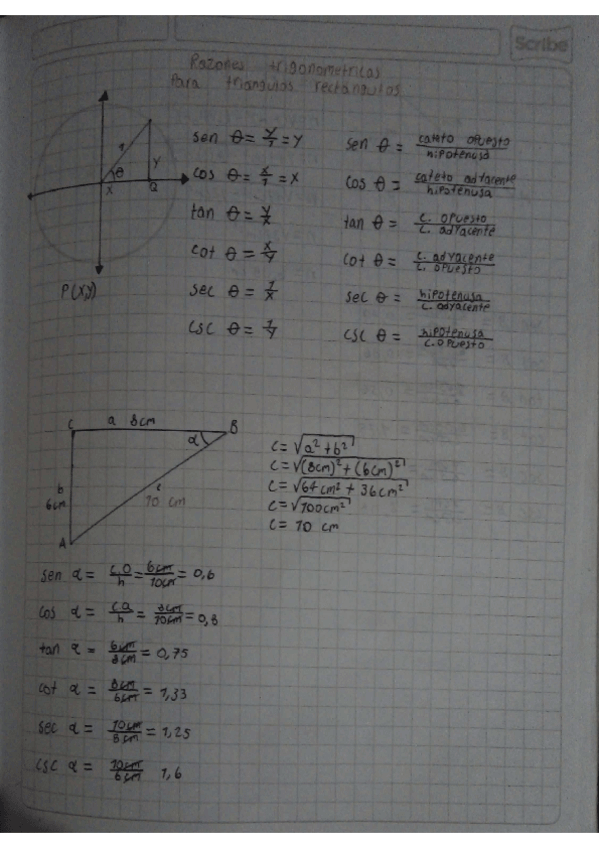 Scribe
Razones trigonometricas
para triangulos rectángulos
1
Y
θ
X
Q
P(X,Y)
sen θ = Y/1 = Y
cos θ = X/1 = X
tan θ = Y/X
cot θ = X/Y
sec θ = 1/X
csc θ = 1/Y
sen θ = cateto opuesto/hipotenusa
cos θ = cateto adyacente/hipotenusa
tan θ = c. opuesto/c. adyacente
cot θ = c. adyacente/c. opuesto
sec θ = hipotenusa/c. adyacente
csc θ = hipotenusa/c. opuesto
C a 8cm B
α
b
6cm
c
10 cm
A
c = √a² + b²
c = √(8cm)² + (6cm)²
c = √64cm² + 36cm²
c = √100cm²
c = 10 cm
sen α = c.o/h = 6cm/10cm = 0,6
cos α = ca/h = 8cm/10cm = 0,8
tan α = 6cm/8cm = 0,75
cot α = 8cm/6cm = 1,33
sec α = 10cm/8cm = 1,25
csc α = 10cm/6cm 1,6